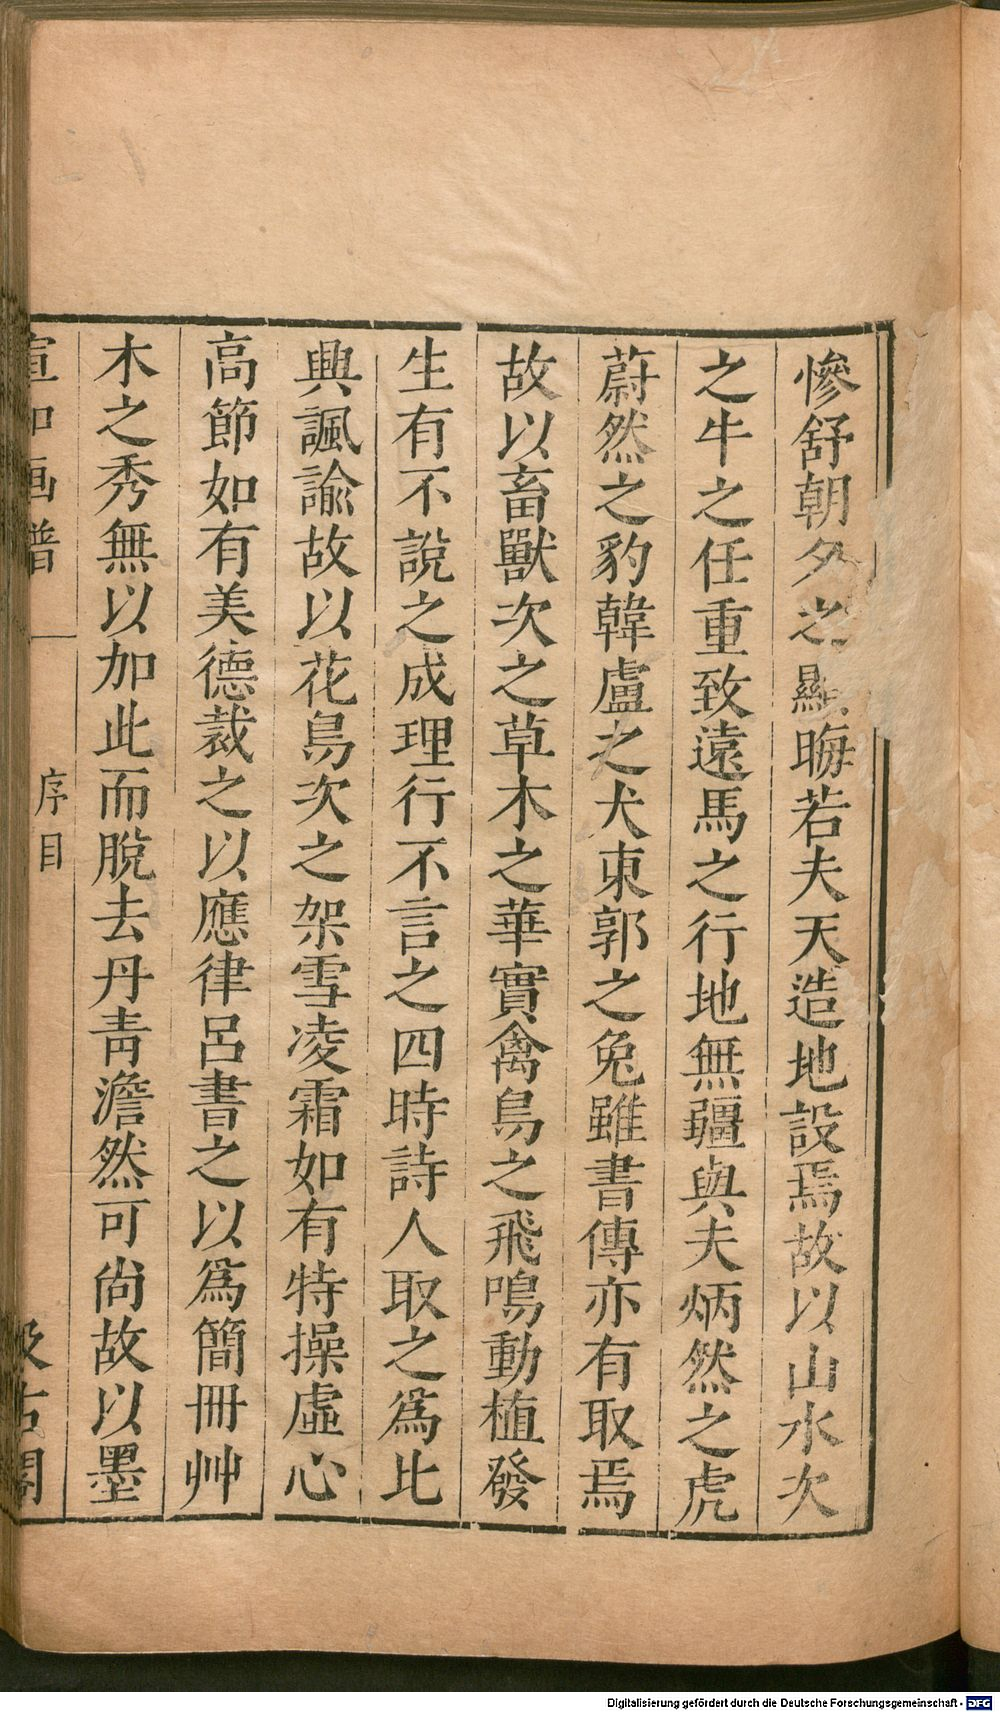 慘舒朝夕之顯晦若夫天造地設焉故以山水次
之牛之任重致遠馬之行地無疆與夫炳然之虎
蔚然之豹韓盧之犬東郭之兔雖書傳亦有取焉
故以畜獸次之草木之華實禽鳥之飛鳴動植發
生有不說之成理行不言之四時詩人取之爲比
興諷諭故以花鳥次之架雪凌霜如有特操虛心
高節如有美德裁之以應律呂書之以爲簡冊艸
木之秀無以加此而脫去丹靑澹然可尙故以墨
宣和画譜
序目
汲古閣
Digitalisierung gefördert durch die Deutsche Forschungsgemeinschaft - DFG